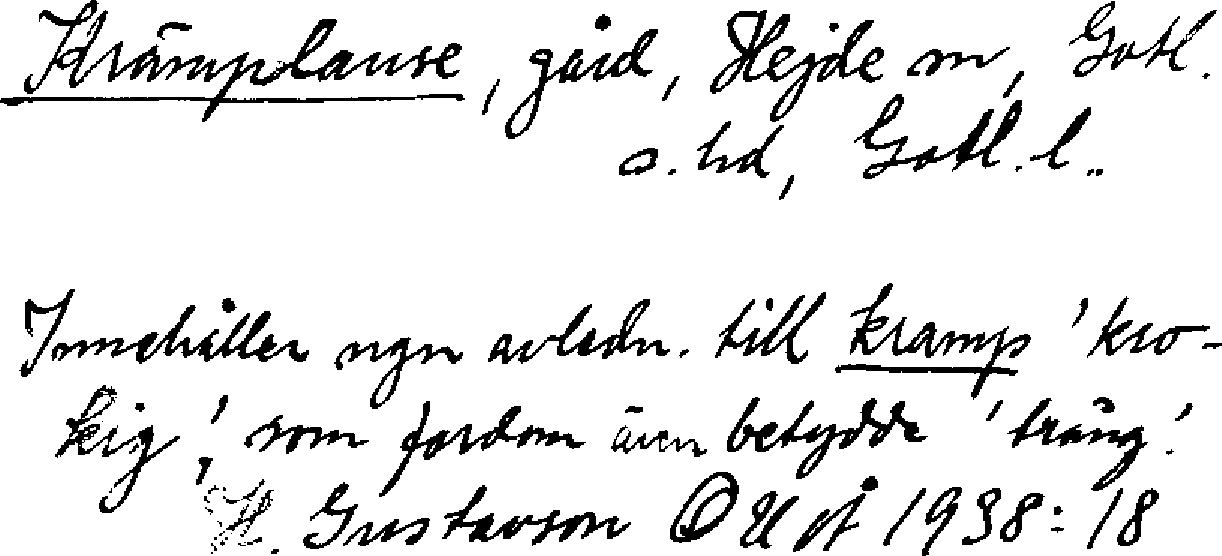 Krämplause, gård, Hejde sn, Gotl.
s. hd, Gotl. l..
Innehåller ngn avledn. till kramp 'kro-
kig', som fordom även betydde 'trång'.
H. Gustavson OUÅ 1938:18